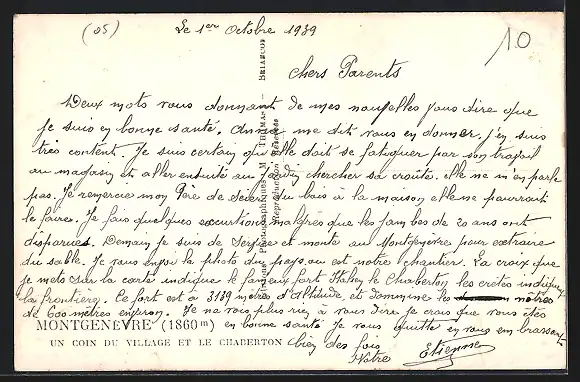 (05)
Le 1er Octobre 1939
10
Chers Parents
Deux mots vous donnant de mes nouvelles pour dire que
je suis en bonne santé. Annie me dit vous en donner. j'en suis
très content. Je suis certain qu'elle doit se fatiguer par son travail
au magasin et aller ensuite au jardin chercher sa croûte. elle ne m'en parle
pas. Je remercie mon Père de scier du bois à la maison elle ne pourrait
le faire. Je fais quelques excurtions malgrés que les jambes de 20 ans ont
disparues. Demain je suis de service et monte au Montgenèvre pour extraire
du sable. Je vous envoi le photo du pays ou est notre chantier. La croix que
je mets sur la carte indique le fameux fort Italien le Chaberton les crêtes indiquent
la frontière. Ce fort est à 3139 mètres d'Altitude, et domine les nôtres
de 600 mètres environ. Je ne vois plus rien à vous dire je crois que vous êtes
en bonne santé Je vous quitte en vous embrassant
bien des fois
Votre
Etienne
MONTGENÈVRE (1860m)
UN COIN DU VILLAGE ET LE CHABERTON
Photographiques THOMAS - BRIANÇON
Reproduction Réservée